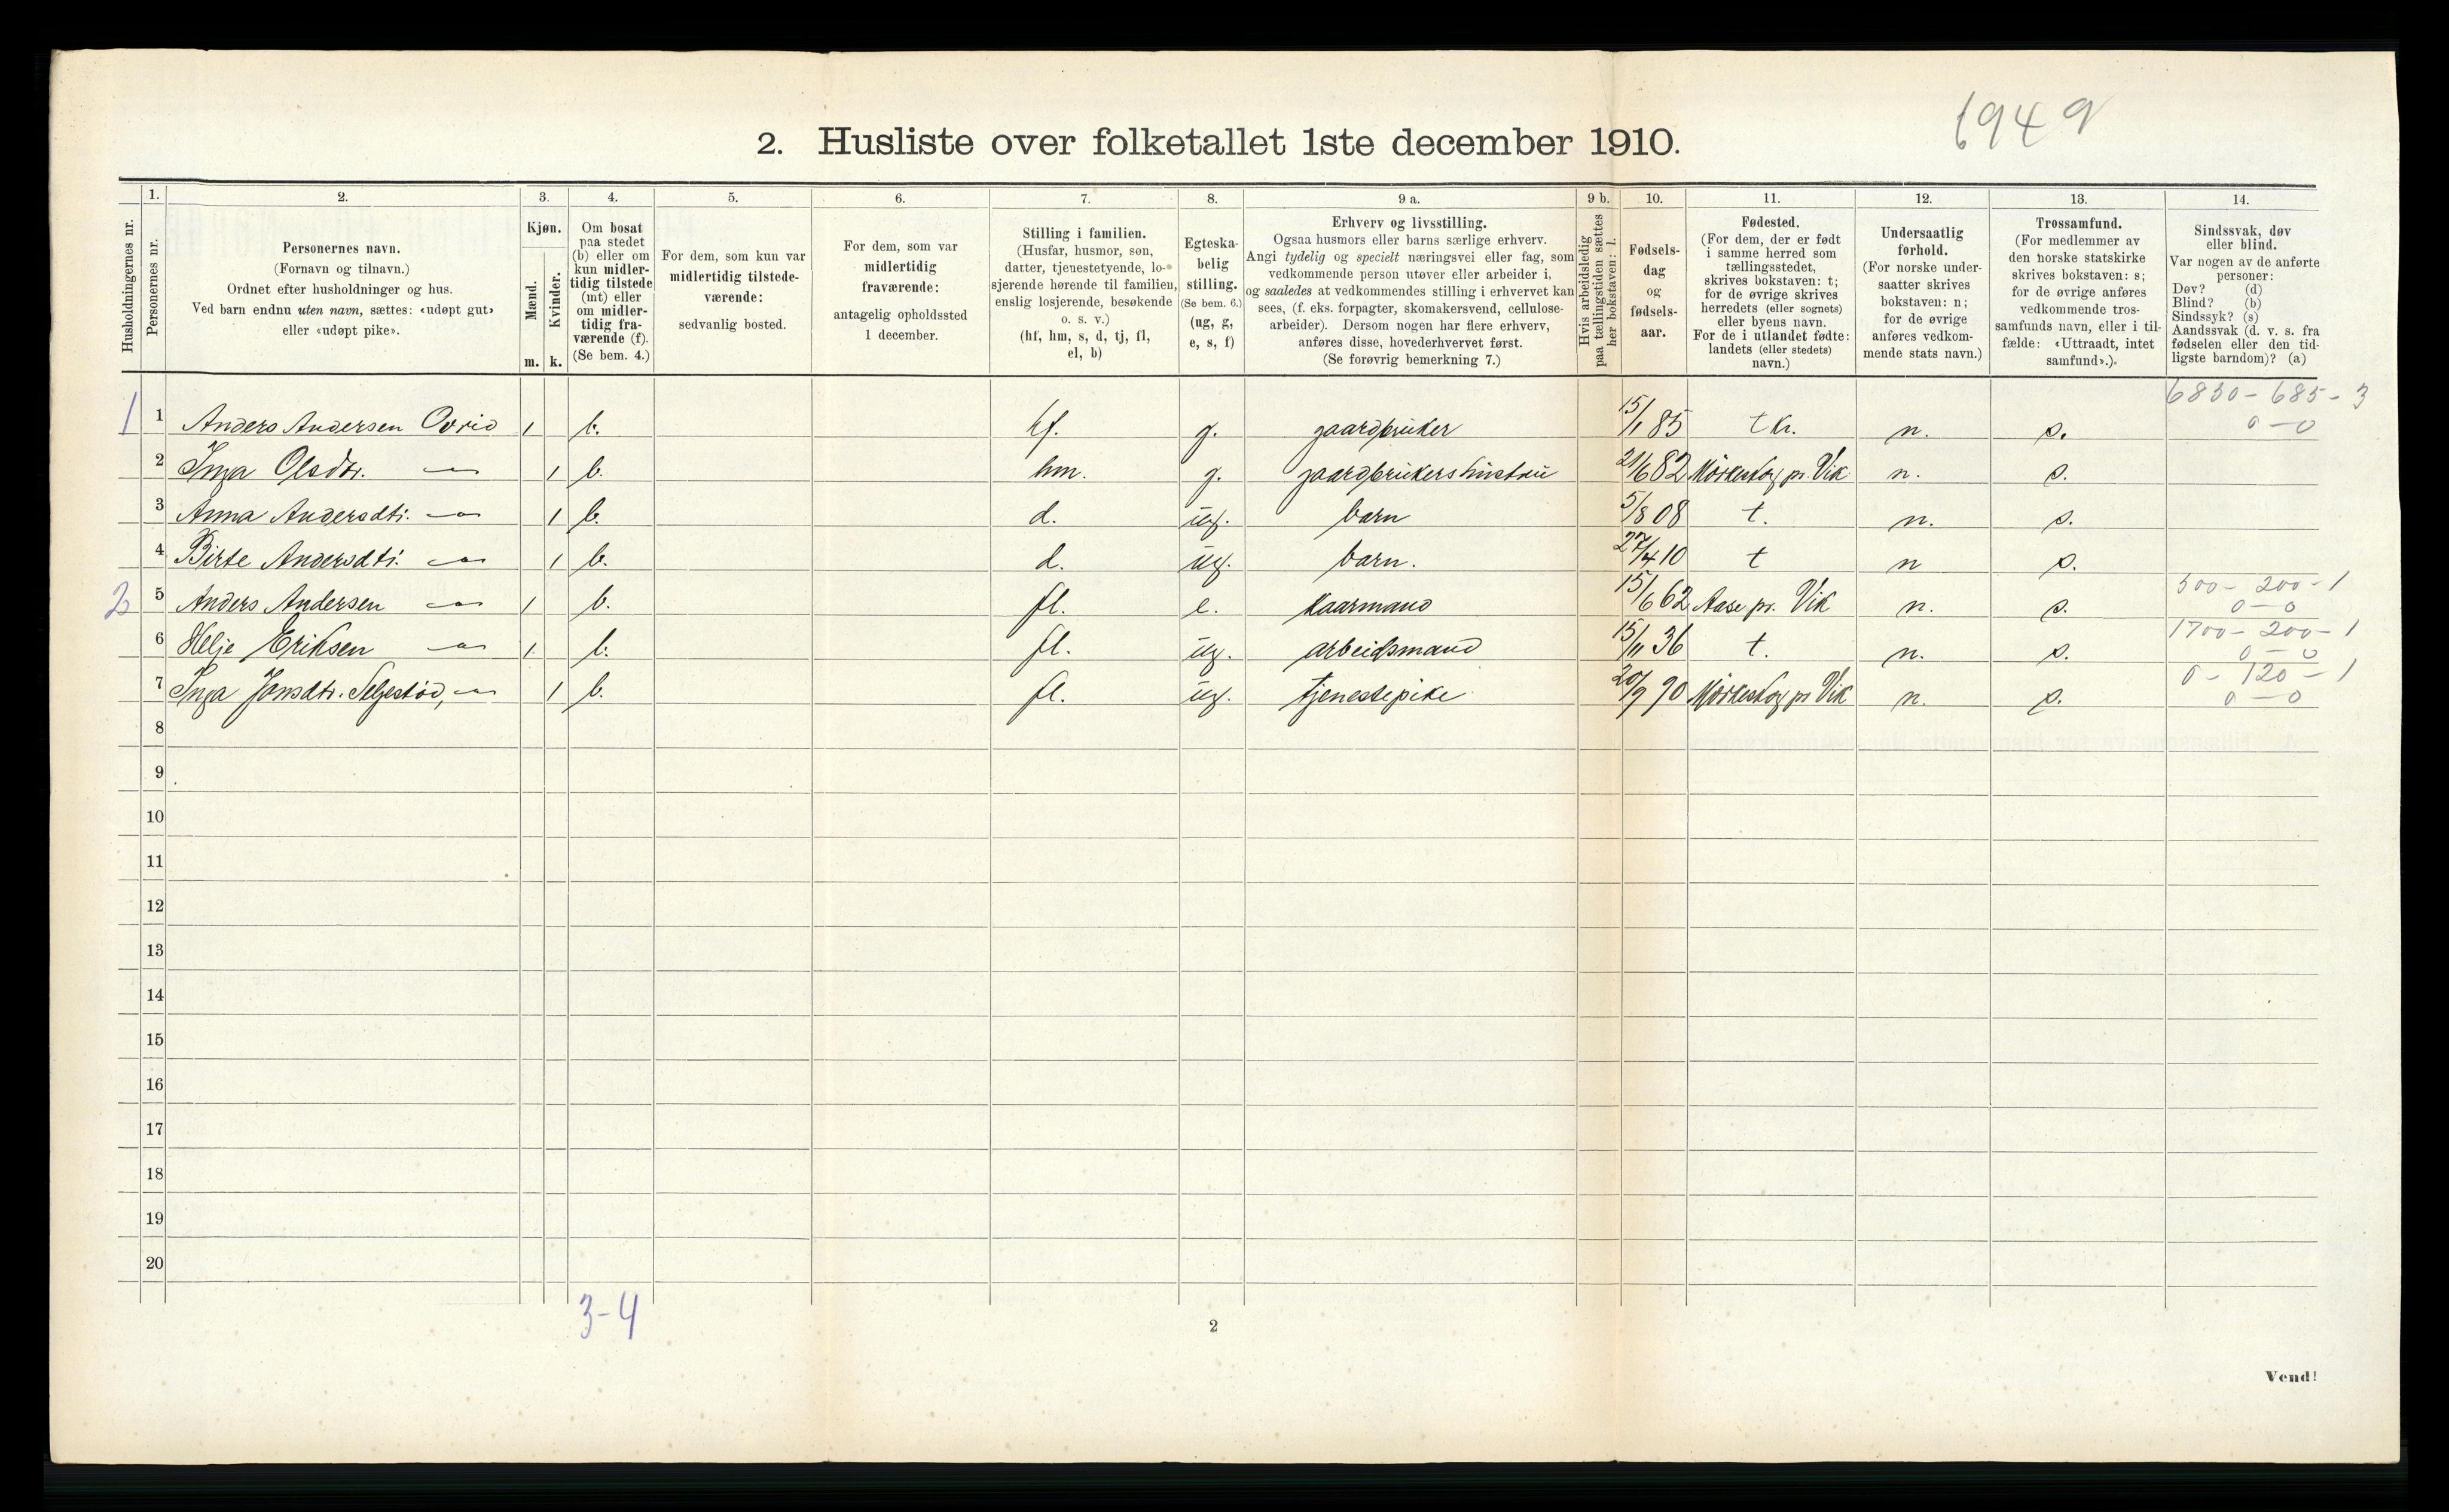 6949
2. Husliste over folketallet 1ste december 1910.
Husholdningernes nr.
1.
Personernes nr.
2.
Personernes navn.
(Fornavn og tilnavn.)
Ordnet efter husholdninger og hus.
Ved barn endnu uten navn, sættes: «udøpt gut»
eller «udøpt pike».
3.
Kjøn.
Mænd.
Kvinder.
m. k.
4.
Om bosat
paa stedet
(b) eller om
kun midler-
tidig tilstede
(mt) eller
om midler-
tidig fra-
værende (f).
(Se bem. 4.)
5.
For dem, som kun var
midlertidig tilstede-
værende:
sedvanlig bosted.
6.
For dem, som var
midlertidig
fraværende:
antagelig opholdssted
1 december.
7.
Stilling i familien.
(Husfar, husmor, søn,
datter, tjenestetyende, lo-
sjerende hørende til familien,
enslig losjerende, besøkende
o. s. v.)
(hf, hm, s, d, tj, fl,
el, b)
8.
Egteska-
belig
stilling.
(Se bem. 6.)
(ug, g,
e, s, f)
9 a.
Erhverv og livsstilling.
Ogsaa husmors eller barns særlige erhverv.
Angi tydelig og specielt næringsvei eller fag, som
vedkommende person utøver eller arbeider i,
og saaledes at vedkommendes stilling i erhvervet kan
sees, (f. eks. forpagter, skomakersvend, cellulose-
arbeider). Dersom nogen har flere erhverv,
anføres disse, hovederhvervet først.
(Se forøvrig bemerkning 7.)
9 b.
Hvis arbeidsledig
paa tællingstiden sættes
her bokstaven: l.
10.
Fødsels-
dag
og
fødsels-
aar.
11.
Fødested.
(For dem, der er født
i samme herred som
tællingsstedet,
skrives bokstaven: t;
for de øvrige skrives
herredets (eller sognets)
eller byens navn.
For de i utlandet fødte:
landets (eller stedets)
navn.)
12.
Undersaatlig
forhold.
(For norske under-
saatter skrives
bokstaven: n;
for de øvrige
anføres vedkom-
mende stats navn.)
13.
Trossamfund.
(For medlemmer av
den norske statskirke
skrives bokstaven: s;
for de øvrige anføres
vedkommende tros-
samfunds navn, eller i til-
fælde: «Uttraadt, intet
samfund».)
14.
Sindssvak, døv
eller blind.
Var nogen av de anførte
personer:
Døv? (d)
Blind? (b)
Sindssyk? (s)
Aandssvak (d. v. s. fra
fødselen eller den tid-
ligste barndom)? (a)
6830 - 685 - 3
1 1 Anders Andersen Ovrid 1 b. hf. g. gaardbruker 15/1 85 t kr. n. s. 0 - 0
2 Inga Olsdtr. —"— 1 b. hm. g. gaardbrukers hustru 21/6 82 Mörkestog pr. Vik n. s.
3 Anna Andersdtr. —"— 1 b. d. ug. barn 5/8 08 t. n. s.
4 Birte Andersdtr. —"— 1 b. d. ug. barn. 27/4 10 t n s.
500 - 200 - 1
2 5 Anders Andersen —"— 1 b. fl. e. kaarmand 15/6 62 Aase pr. Vik n. s. 0 - 0
1700 - 200 - 1
6 Helje Eriksen —"— 1. b. fl. ug. arbeidsmand 15/11 36 t. n. s. 0 - 0
0 - 120 - 1
7 Inga Jonsdtr. Seljestöd, —"— 1 b. fl. ug. tjenestepike 20/9 90 Mörkestog pr Vik n. s. 0 - 0
8
9
10
11
12
13
14
15
16
17
18
19
20
3-4
2
Vend!